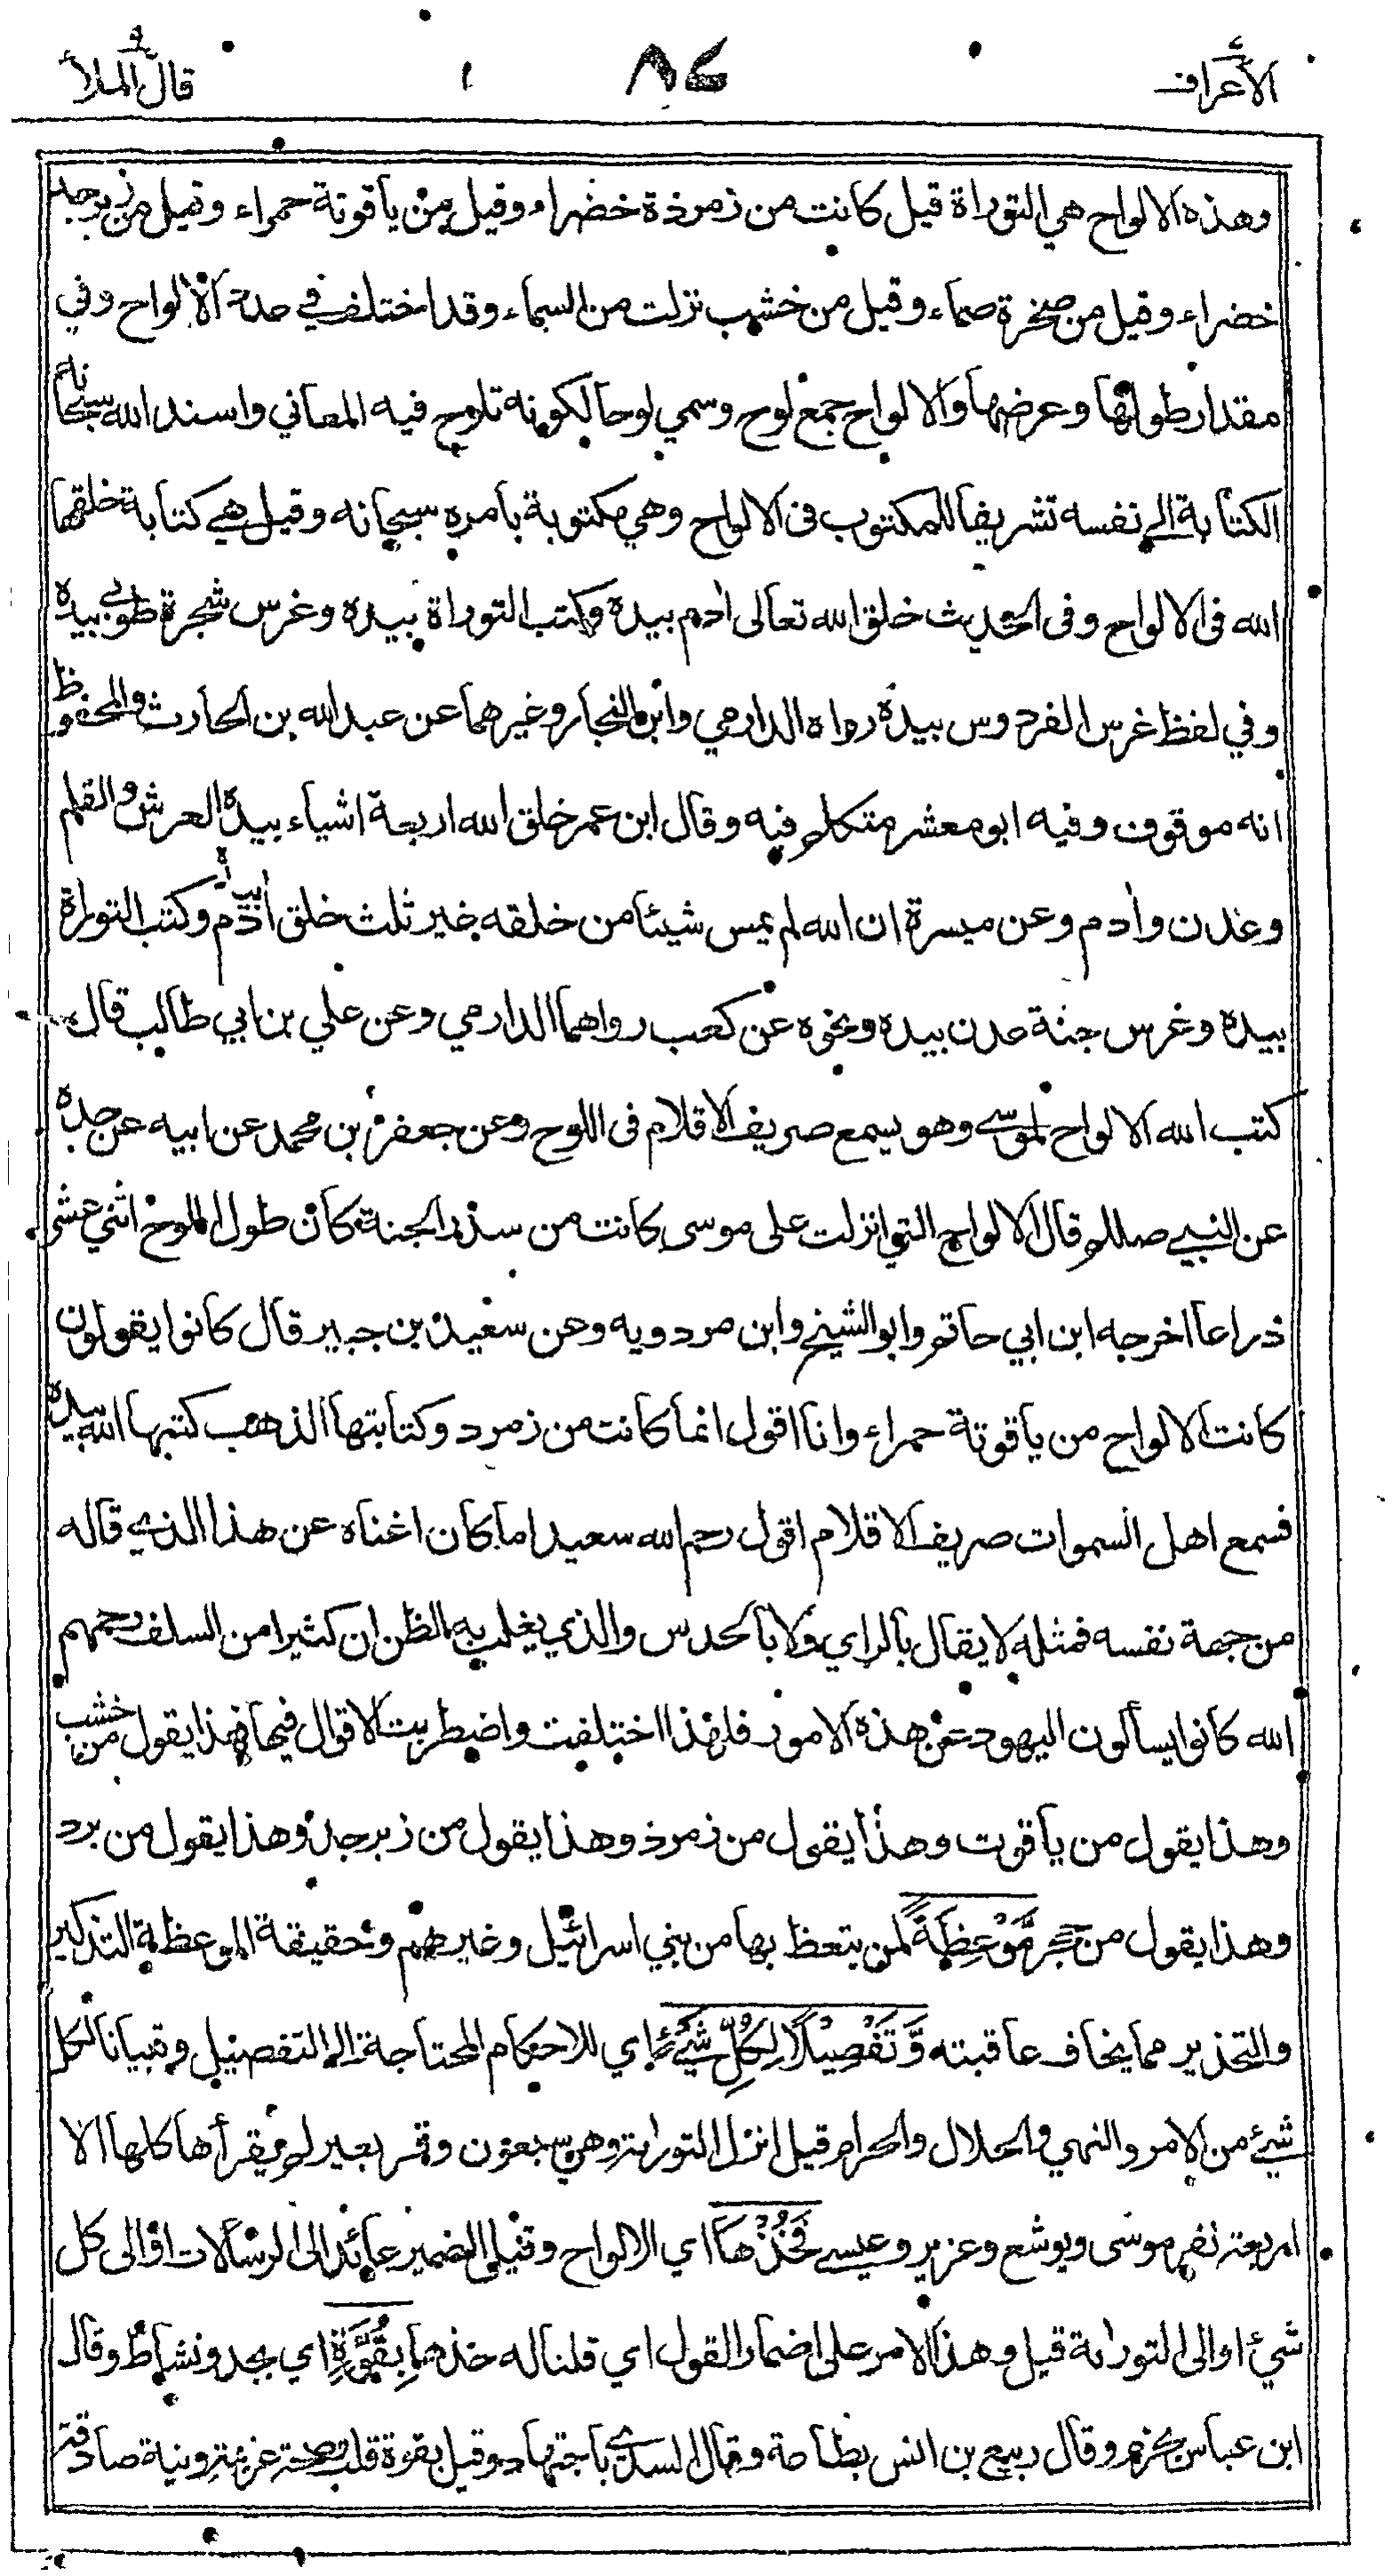 الأعراف ٨٤ قال الملأ ٩
وهذه الالواح هي التوراة قيل كانت من زمردة خضراء وقيل من ياقوتة حمراء وقيل من زبرجد
خضراء وقيل من صخرة صماء وقيل من خشب نزلت من السماء وقد اختلف في عدة الالواح وفي
مقدار طولها وعرضها والالواح جمع لوح وسمي لوحا لكونه تلوح فيه المعاني واسند الله سبحانه
الكتابة الى نفسه تشريفا للمكتوب فى الالواح وهي مكتوبة بامره سبحانه وقيل هي كتابة خلقها
الله فى الالواح وفى الحديث خلق الله تعالى ادم بيده وكتب التوراة بيده وغرس شجرة طوبى بيده
وفي لفظ غرس الفردوس بيده رواه الدارمي وابن النجار وغيرهما عن عبد الله بن الحارث والمحفوظ
انه موقوف وفيه ابو معشر متكلم فيه وقال ابن عمر خلق الله اربعة اشياء بيده العرش والقلم
وعدن وادم وعن ميسرة ان الله لم يمس شيئا من خلقه غير ثلث خلق ادم بيده وكتب التوراة
بيده وغرس جنة عدن بيده ونحوه عن كعب رواهما الدارمي وعن علي بن ابي طالب قال
كتب الله الالواح لموسى وهو يسمع صريف الاقلام فى اللوح وعن جعفر بن محمد عن ابيه عن جده
عن النبي صللم قال الالواح التي انزلت على موسى كانت من سدر الجنة كان طول اللوح اثني عشر
ذراعا اخرجه ابن ابي حاتم وابو الشيخ وابن مردويه وعن سعيد بن جبير قال كانوا يقولون
كانت الالواح من ياقوتة حمراء وانا اقول انما كانت من زمرد وكتابتها الذهب كتبها الله بيده
فسمع اهل السموات صريف الاقلام اقول رحم الله سعيدا ما كان اغناه عن هذا الذي قاله
من جهة نفسه فمثله لا يقال بالراي ولا بالحدس والذي يغلب به الظن ان كثيرا من السلف رحمهم
الله كانوا يسألون اليهود عن هذه الامور فلهذا اختلفت واضطربت الاقوال فيها فهذا يقول من خشب
وهذا يقول من ياقوت وهذا يقول من زمرد وهذا يقول من زبرجد وهذا يقول من برد
وهذا يقول من حجر مَّوْعِظَةً لمن يتعظ بها من بني اسرائيل وغيرهم وحقيقة الموعظة التذكير
والتحذير مما يخاف عاقبته وَّتَفْصِيلًا لِكُلِّ شَيْءٍ اي للاحكام المحتاجة الى التفصيل وتبيانا لكل
شيئ من الامر والنهي والحلال والحرام قيل انزل التوراة وهي سبعون وقر بعير لم يقرأها كلها الا
اربعة نفر موسى ويوشع وعزير وعيسى فَخُذْهَا اي الالواح وقيل الضمير عائد الى الرسالات او الى كل
شيئ او الى التوراة قيل وهذا الامر على اضمار القول اي قلنا له خذها بِقُوَّةٍ اي بجد ونشاط وقال
ابن عباس بحزم وقال ربيع بن انس بطاعة وقال السدي باجتهاد وقيل بقوة قلب وصحة عزيمة ونية صادقة